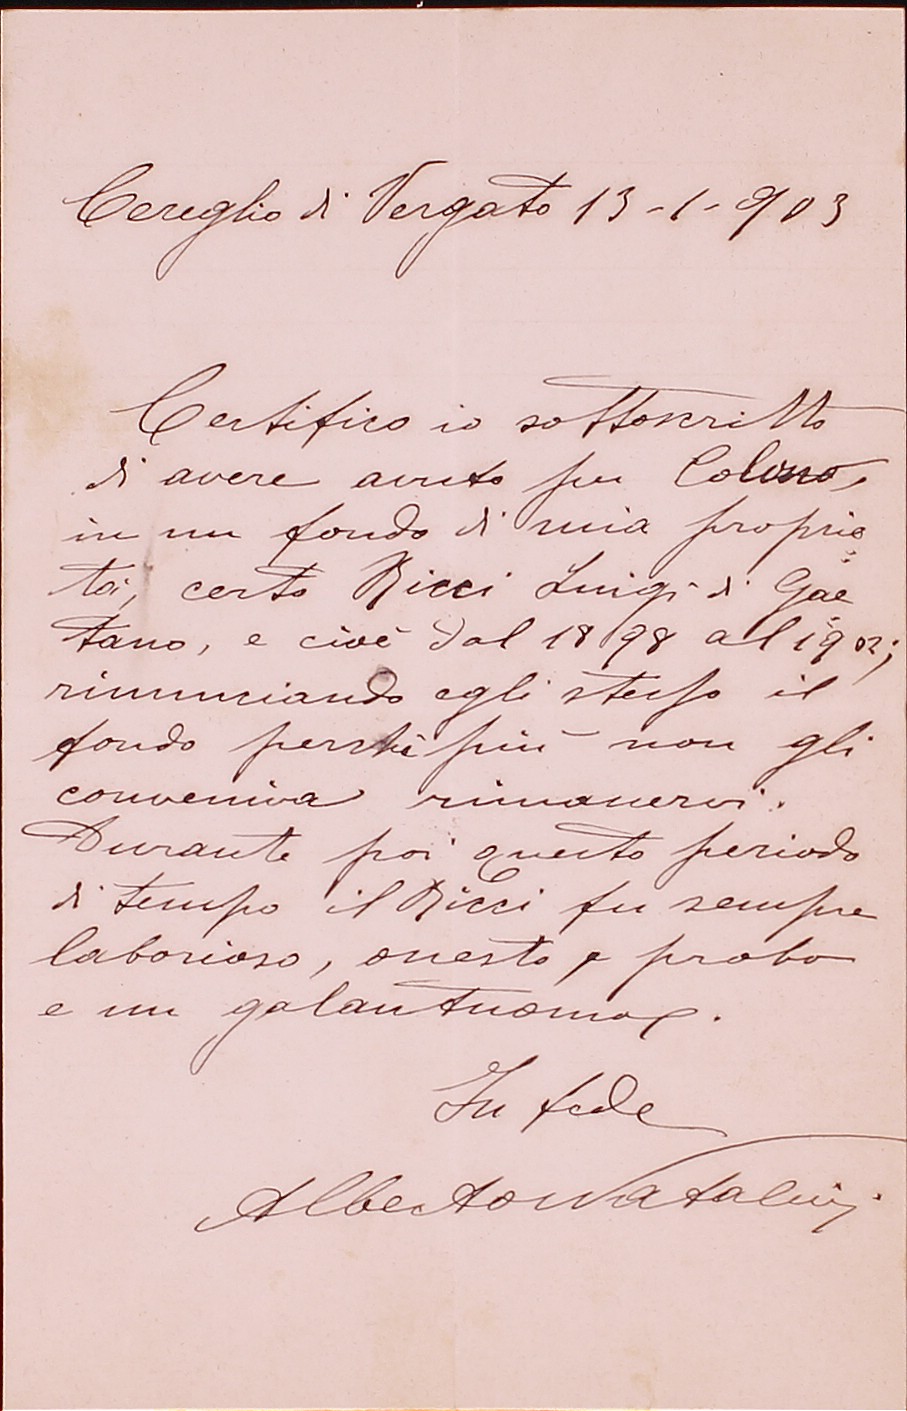 Cereglio di Vergato 13-1-903
Certifico io sottoscritto
di avere avuto per Colono,
in un fondo di mia proprie
tà, certo Ricci Luigi di Gae
tano, e cioè dal 1898 al 1902;
rinunciando egli stesso il
fondo perchè più non gli
conveniva rimanervi.
Durante poi questo periodo
di tempo il Ricci fu sempre
laborioso, onesto, e probo
e un galantuomo.
In fede
Alberto Natalini